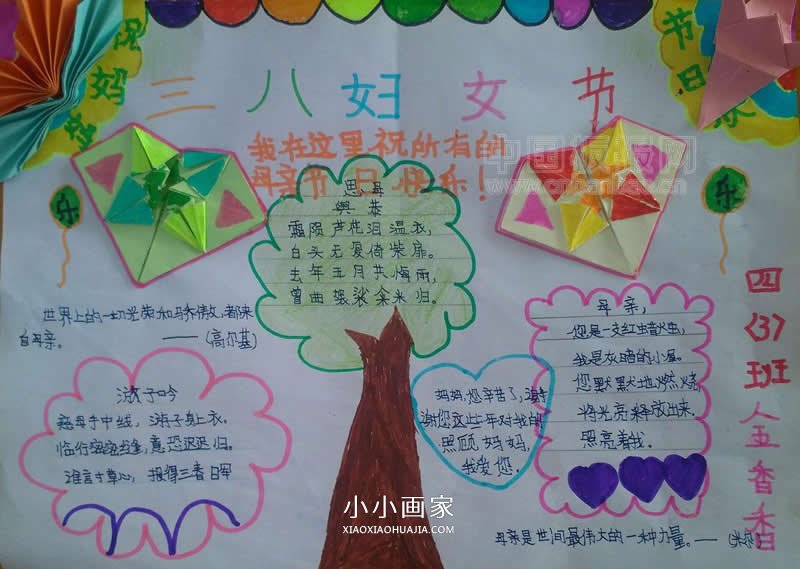 祝妈妈
节日快乐
三八妇女节
我在这里祝所有的
母亲节日快乐！
中国板报网
乐
乐
思母
舆恭
霜陨芦花泪温衣，
白头无爱倚柴扉。
去年五月共悔雨，
曾曲袈裟余米归。
世界上的一切光荣和骄傲，都来
自母亲。
——（高尔基）
游子吟
慈母手中线，游子身上衣。
临行密密缝，意恐迟迟归。
谁言寸草心，报得三春晖
妈妈，您辛苦了，谢谢
谢您这些年对我的
照顾妈妈，
我爱您。
母亲，
您是一支红蜡火虫，
我是灰暗的小屋。
您默默地燃烧
将光亮释放出来，
照亮着我。
母亲是世间最伟大的一种力量。——（米尔）
四
〈3〉
班
金
香
香
小小画家
XIAOXIAOHUAJIA.COM